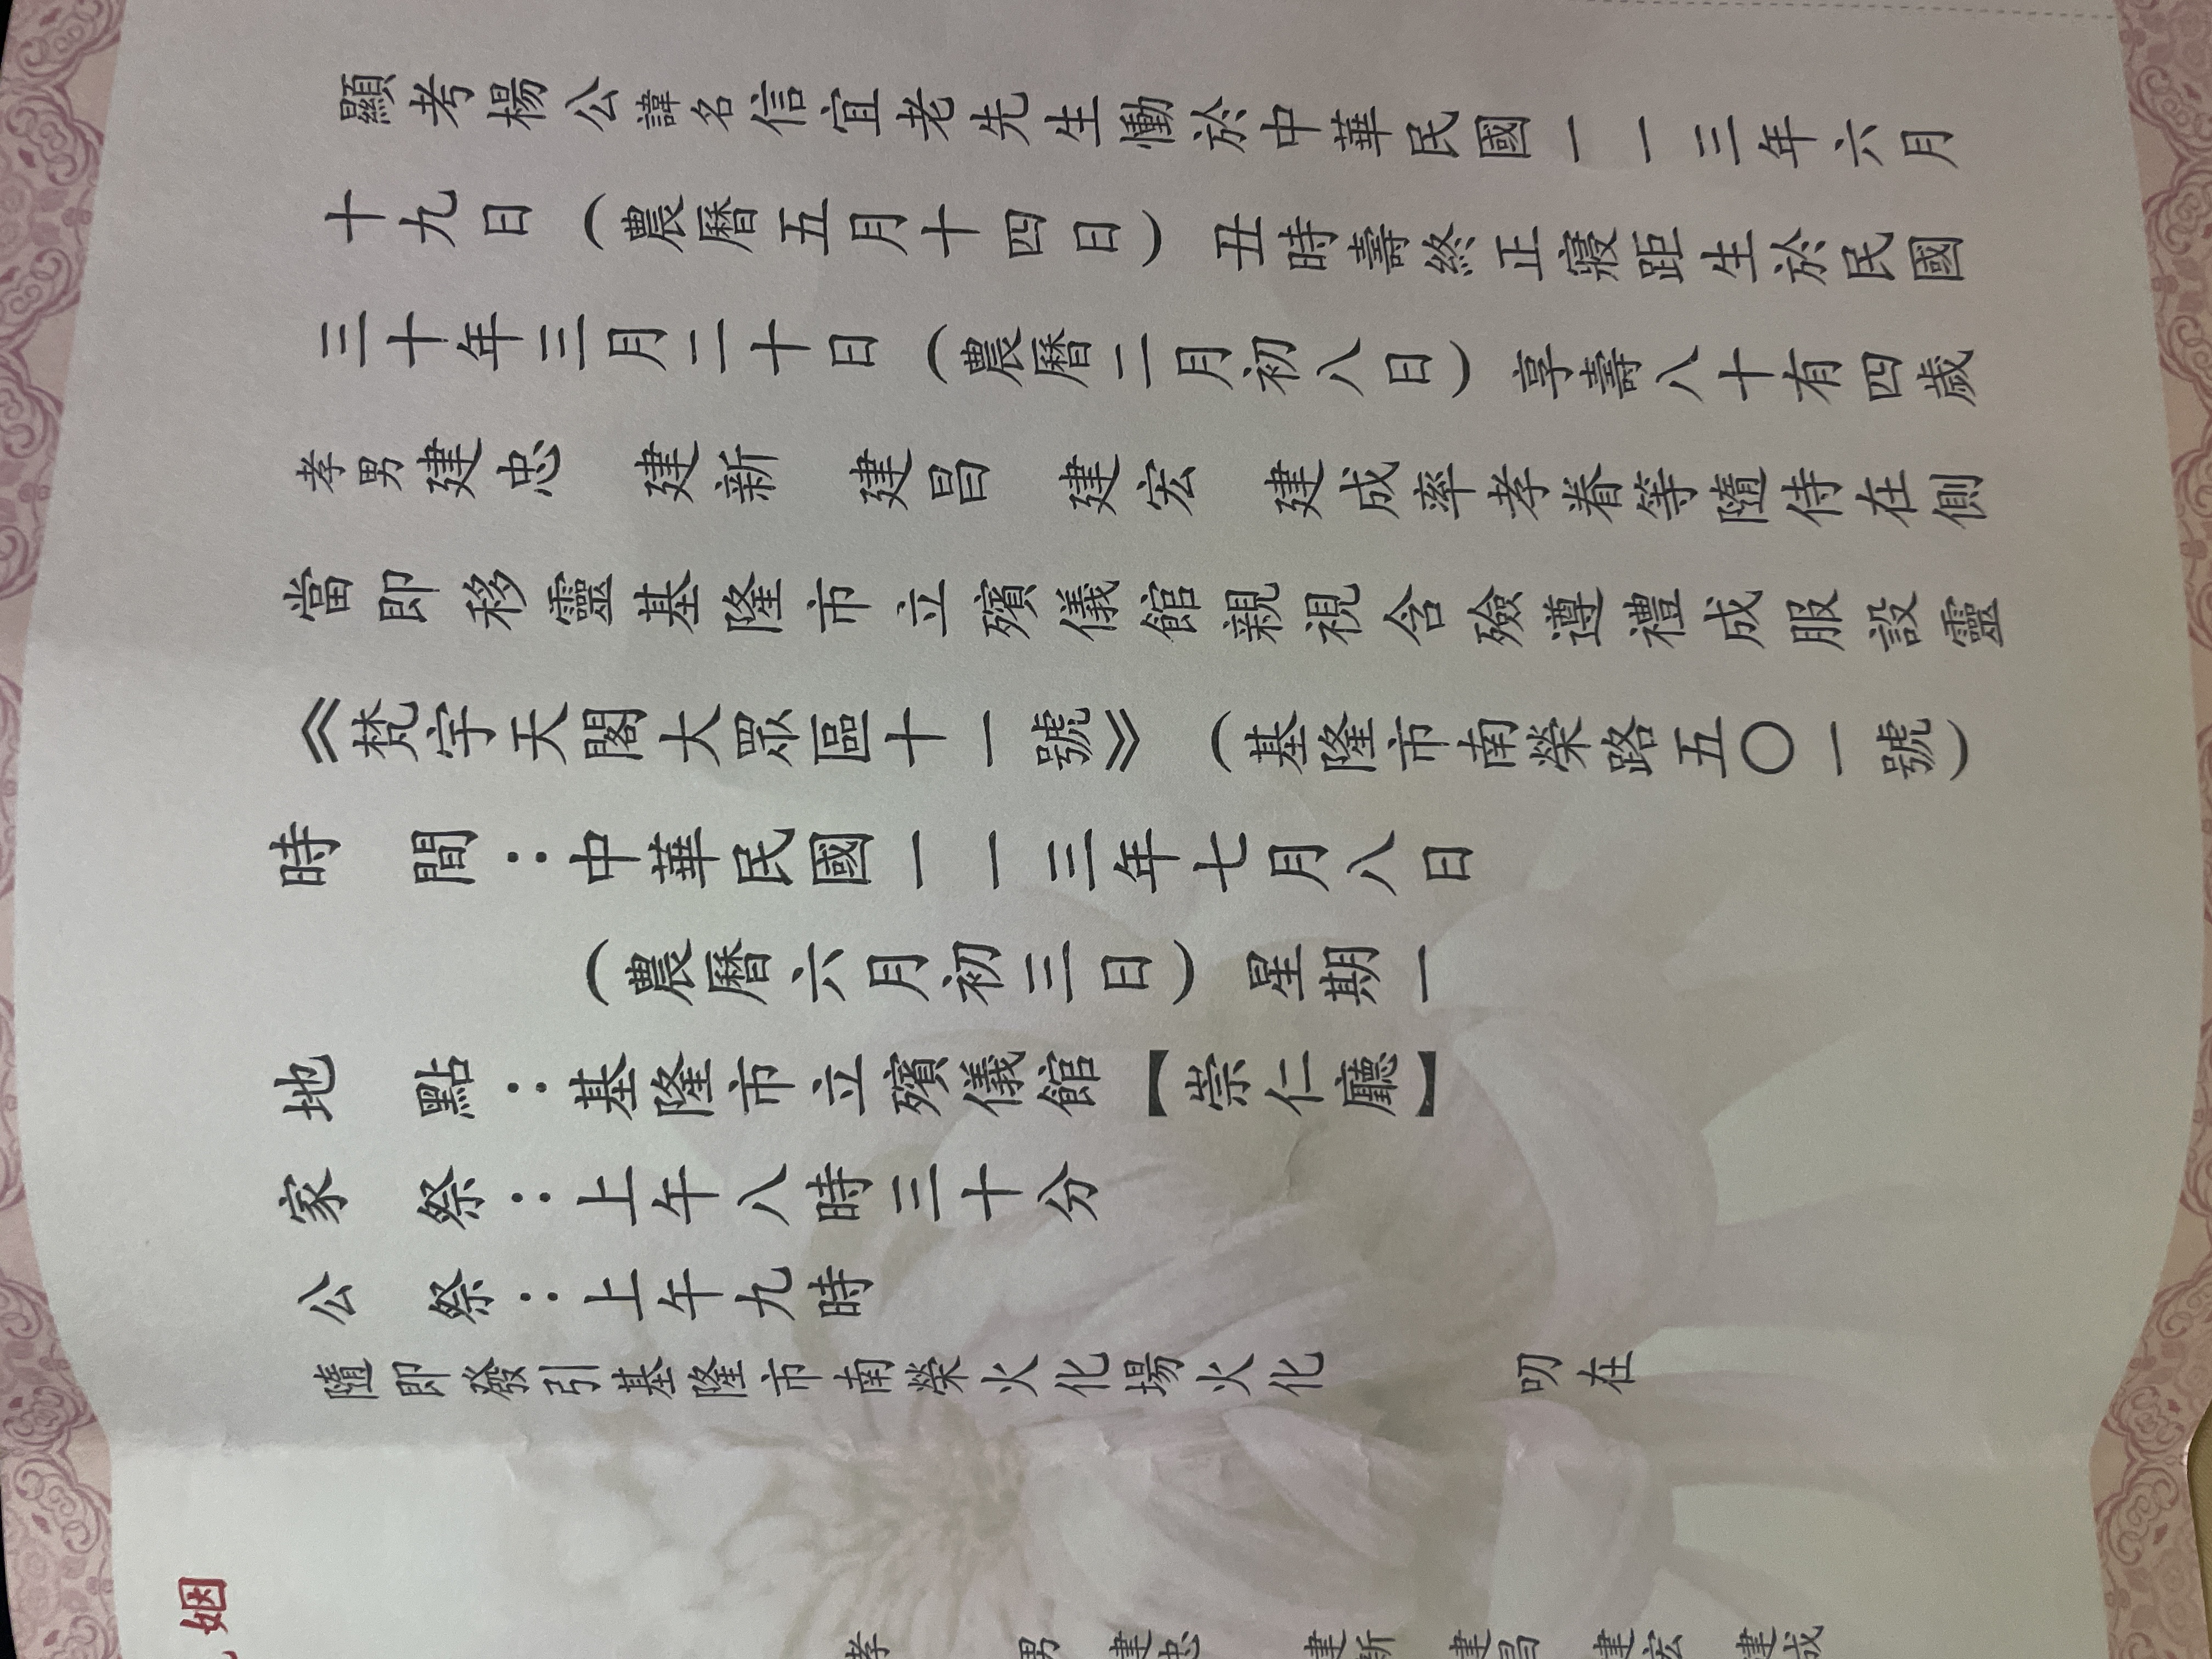 顯考楊公諱名信宜老先生慟於中華民國一一三年六月
十九日（農曆五月十四日）丑時壽終正寢距生於民國
三十年三月二十日（農曆二月初八日）享壽八十有四歲
孝男建忠　建新　建昌　建宏　建成率孝眷等隨侍在側
當即移靈基隆市立殯儀館親視含殮遵禮成服設靈
《梵宇天閣大眾區十一號》（基隆市南榮路五〇一號）
時　間：中華民國一一三年七月八日
（農曆六月初三日）星期一
地　點：基隆市立殯儀館【崇仁廳】
家　祭：上午八時三十分
公　祭：上午九時
隨即發引基隆市南榮火化場火化　　叨在
姻
孝　男　建忠　建新　建昌　建宏　建成